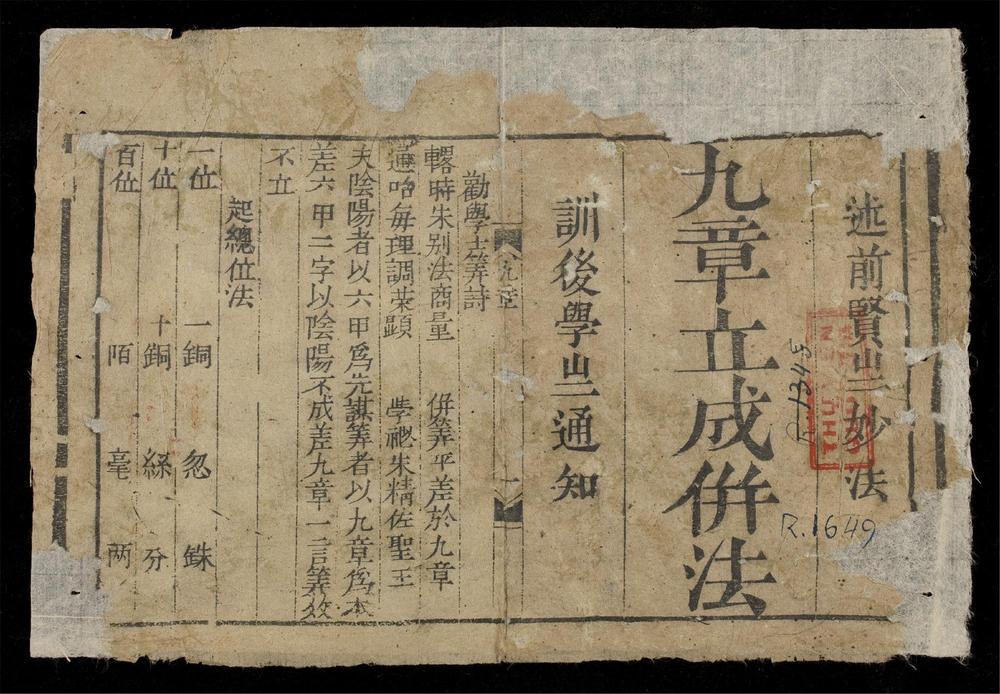 述前賢㞢妙法
九章立成併法
訓後學㞢通知
九章
一
勸學士筭詩
畧時朱别法商量 併筭平差於九章
每理調英顕 学 朱精佐聖王
夫陰陽者以六甲爲先謀筭者以九章爲本
差六甲二字以陰陽不成差九章一言筭效
不立
起總位法
一位 一銅 忽 銖
十位 十銅 絲 分
百位 陌 毫 两
R.1345
R.1649